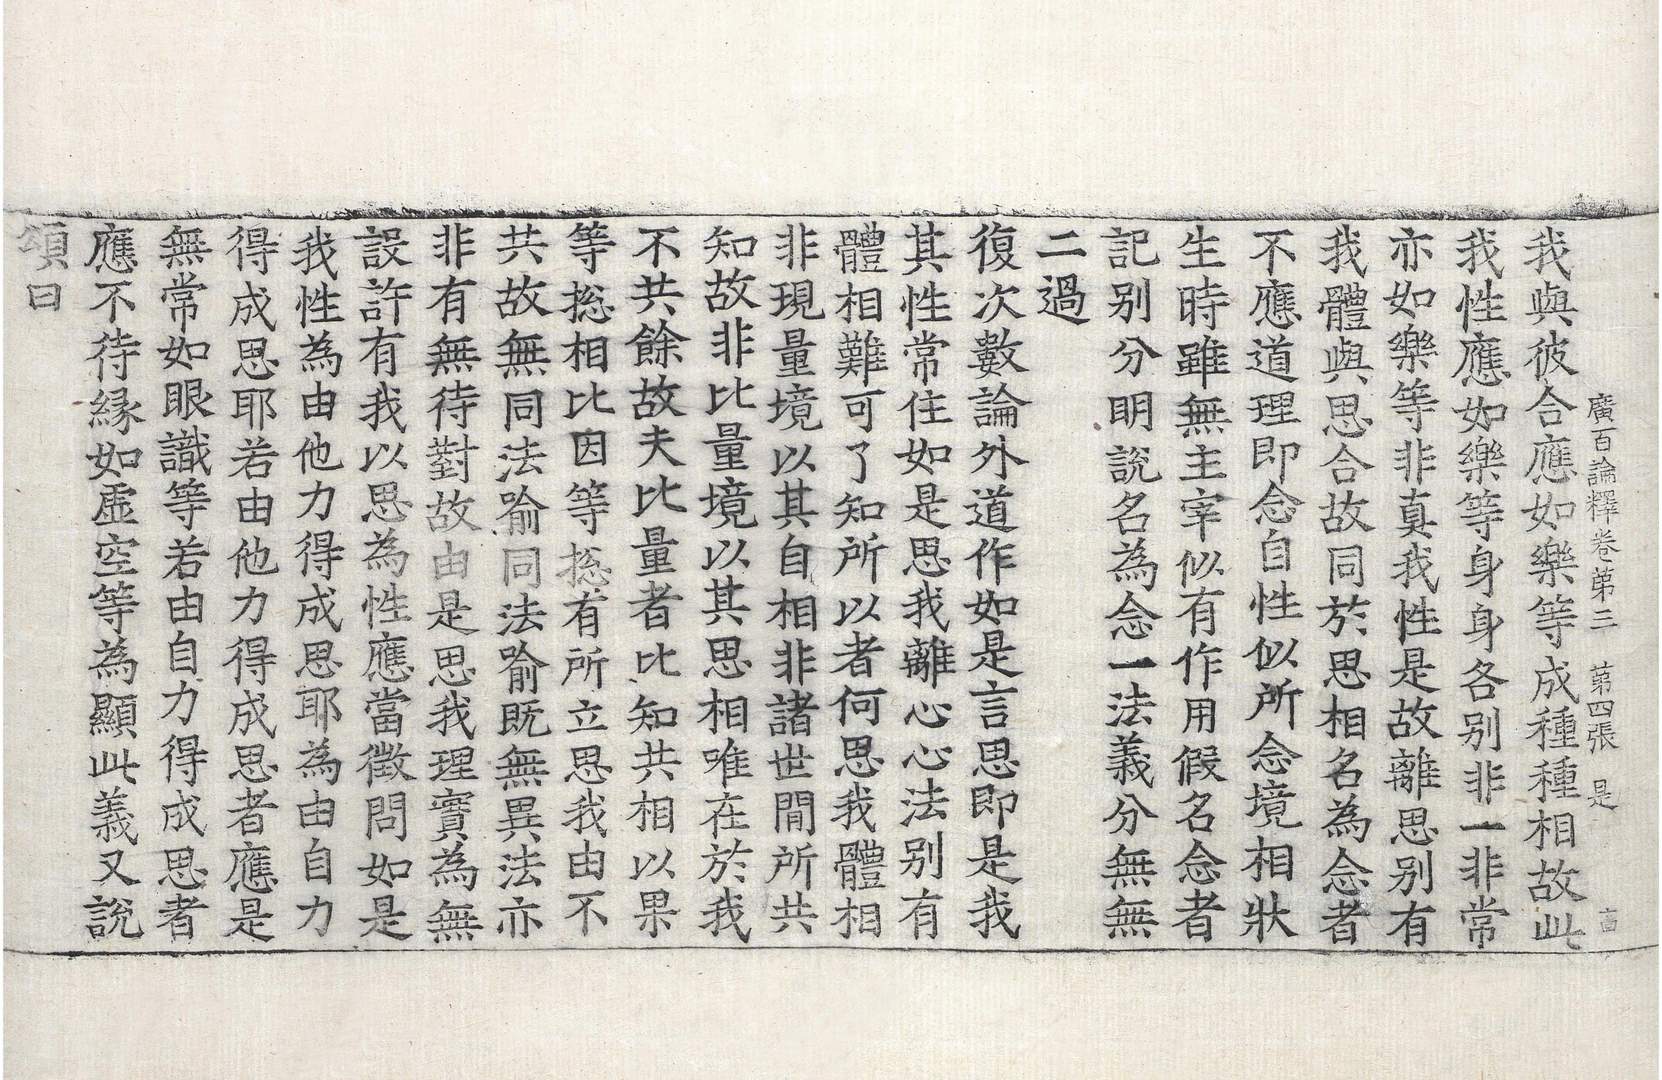 廣百論釋卷苐三 苐四張 是
我與彼合應如樂等成種種相故此
我性應如樂等身身各别非一非常
亦如樂等非真我性是故離思别有
我體與思合故同於思相名為念者
不應道理即念自性似所念境相狀
生時雖無主宰似有作用假名念者
記别分明說名為念一法義分無無
二過
復次數論外道作如是言思即是我
其性常住如是思我離心心法别有
體相難可了知所以者何思我體相
非現量境以其自相非諸世間所共
知故非比量境以其思相唯在於我
不共餘故夫比量者比知共相以果
等揔相比因等揔有所立思我由不
共故無同法喻同法喻既無異法亦
非有無待對故由是思我理實為無
設許有我以思為性應當徵問如是
我性為由他力得成思耶為由自力
得成思耶若由他力得成思者應是
無常如眼識等若由自力得成思者
應不待緣如虛空等為顯此義又說
頌曰